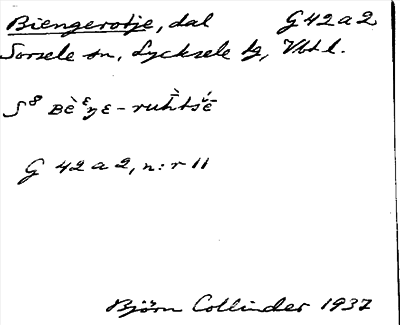 Biengerotje, dal G42a2
Sorsele sn, Lycksele lg, Vbtl.
G 42 a 2, n:r 11
Björn Collinder 1937